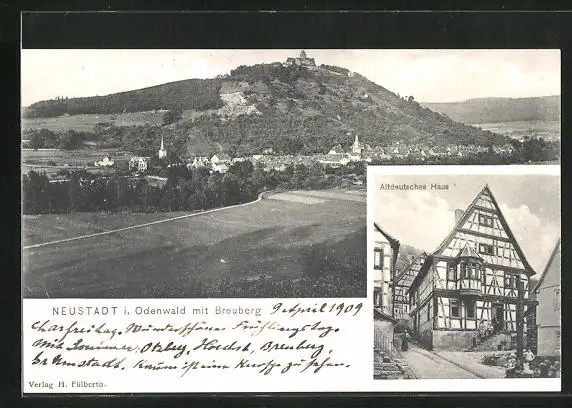 Altdeutsches Haus
NEUSTADT i. Odenwald mit Breuberg 9 April 1909
Charfreitag. Wunderschöne Frühlingstage
mit Sommer, Otzbg, Höchst, Breuberg
Kaum ist eine Knospe zu sehen.
Verlag H. Fülberth.